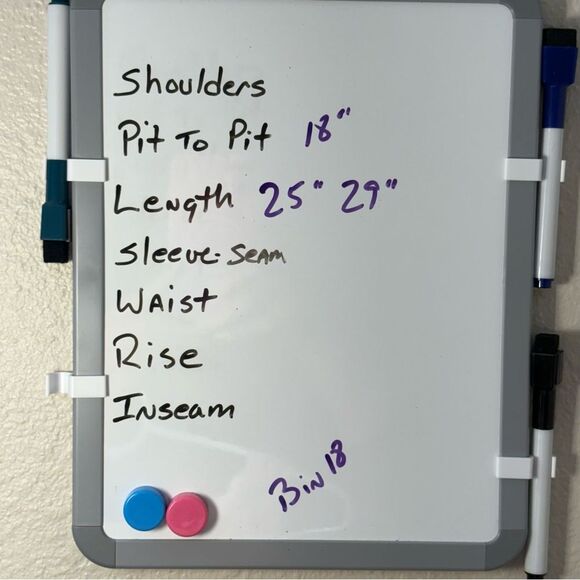 Shoulders
Pit To Pit 18"
Length 25" 29"
Sleeve-Seam
Waist
Rise
Inseam
Bin 18